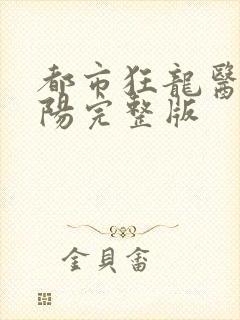 都市狂龍醫
陽完整版
金貝畬